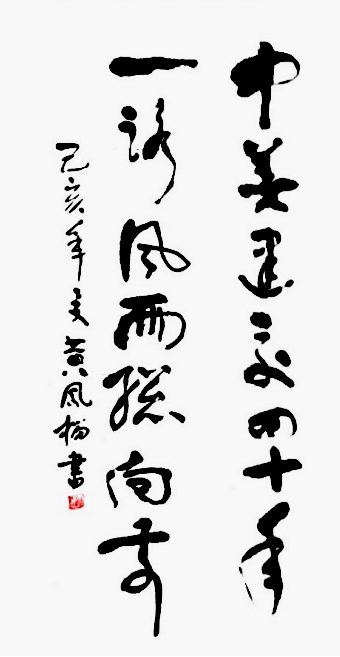 中美建交四十年
一路风雨總向前
己亥年夏黄风書